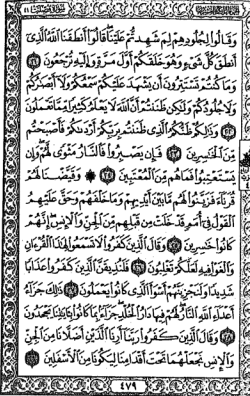 سورة فصلت ٤١
وَقَالُوا۟ لِجُلُودِهِمْ لِمَ شَهِدتُّمْ عَلَيْنَا قَالُوٓا۟ أَنطَقَنَا ٱللَّهُ ٱلَّذِىٓ
أَنطَقَ كُلَّ شَىْءٍ وَهُوَ خَلَقَكُمْ أَوَّلَ مَرَّةٍ وَإِلَيْهِ تُرْجَعُونَ ٢١
وَمَا كُنتُمْ تَسْتَتِرُونَ أَن يَشْهَدَ عَلَيْكُمْ سَمْعُكُمْ وَلَآ أَبْصَٰرُكُمْ
وَلَا جُلُودُكُمْ وَلَٰكِن ظَنَنتُمْ أَنَّ ٱللَّهَ لَا يَعْلَمُ كَثِيرًا مِّمَّا تَعْمَلُونَ
٢٢ وَذَٰلِكُمْ ظَنُّكُمُ ٱلَّذِى ظَنَنتُم بِرَبِّكُمْ أَرْدَىٰكُمْ فَأَصْبَحْتُم
مِّنَ ٱلْخَٰسِرِينَ ٢٣ فَإِن يَصْبِرُوا۟ فَٱلنَّارُ مَثْوًى لَّهُمْ وَإِن
يَسْتَعْتِبُوا۟ فَمَا هُم مِّنَ ٱلْمُعْتَبِينَ ٢٤ ۞ وَقَيَّضْنَا لَهُمْ
قُرَنَآءَ فَزَيَّنُوا۟ لَهُم مَّا بَيْنَ أَيْدِيهِمْ وَمَا خَلْفَهُمْ وَحَقَّ عَلَيْهِمُ
ٱلْقَوْلُ فِىٓ أُمَمٍ قَدْ خَلَتْ مِن قَبْلِهِم مِّنَ ٱلْجِنِّ وَٱلْإِنسِ إِنَّهُمْ
كَانُوا۟ خَٰسِرِينَ ٢٥ وَقَالَ ٱلَّذِينَ كَفَرُوا۟ لَا تَسْمَعُوا۟ لِهَٰذَا ٱلْقُرْءَانِ
وَٱلْغَوْا۟ فِيهِ لَعَلَّكُمْ تَغْلِبُونَ ٢٦ فَلَنُذِيقَنَّ ٱلَّذِينَ كَفَرُوا۟ عَذَابًا
شَدِيدًا وَلَنَجْزِيَنَّهُمْ أَسْوَأَ ٱلَّذِى كَانُوا۟ يَعْمَلُونَ ٢٧ ذَٰلِكَ جَزَآءُ
أَعْدَآءِ ٱللَّهِ ٱلنَّارُ لَهُمْ فِيهَا دَارُ ٱلْخُلْدِ جَزَآءًۢ بِمَا كَانُوا۟ بِـَٔايَٰتِنَا يَجْحَدُونَ
٢٨ وَقَالَ ٱلَّذِينَ كَفَرُوا۟ رَبَّنَآ أَرِنَا ٱلَّذَيْنِ أَضَلَّانَا مِنَ ٱلْجِنِّ
وَٱلْإِنسِ نَجْعَلْهُمَا تَحْتَ أَقْدَامِنَا لِيَكُونَا مِنَ ٱلْأَسْفَلِينَ ٢٩
٤٧٩